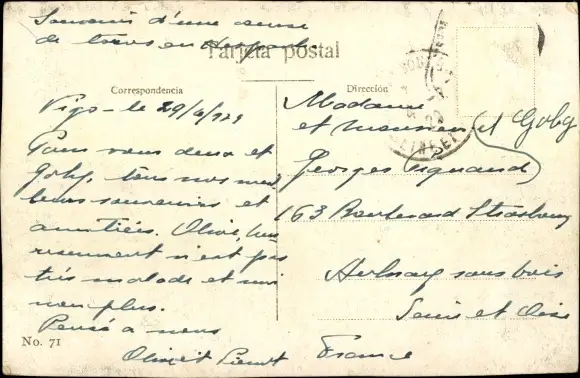 Souvenir d'une course
de toros en
Tarjeta postal
Correspondencia
Vigo - le 29/4/929
Pour vous deux et
Goby, tous nos meil
leurs souvenirs et
amitiés. Olive, heu
reusement n'est pas
très malade et moi
non plus.
Pensé a nous
Olive et
No. 71
Dirección
Madame
et monsieur et Goby
Georges
163 Boulevard Strasbourg
Aulnay sous bois
Seine et Oise
France